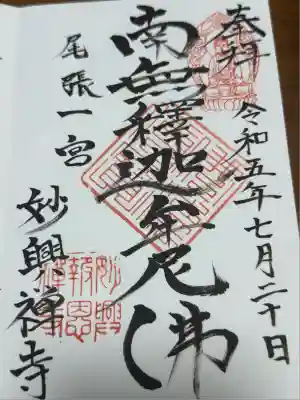 奉拝
令和五年七月二十日
南無釋迦牟尼佛
尾張一宮
妙興禅寺
妙興報恩禅寺